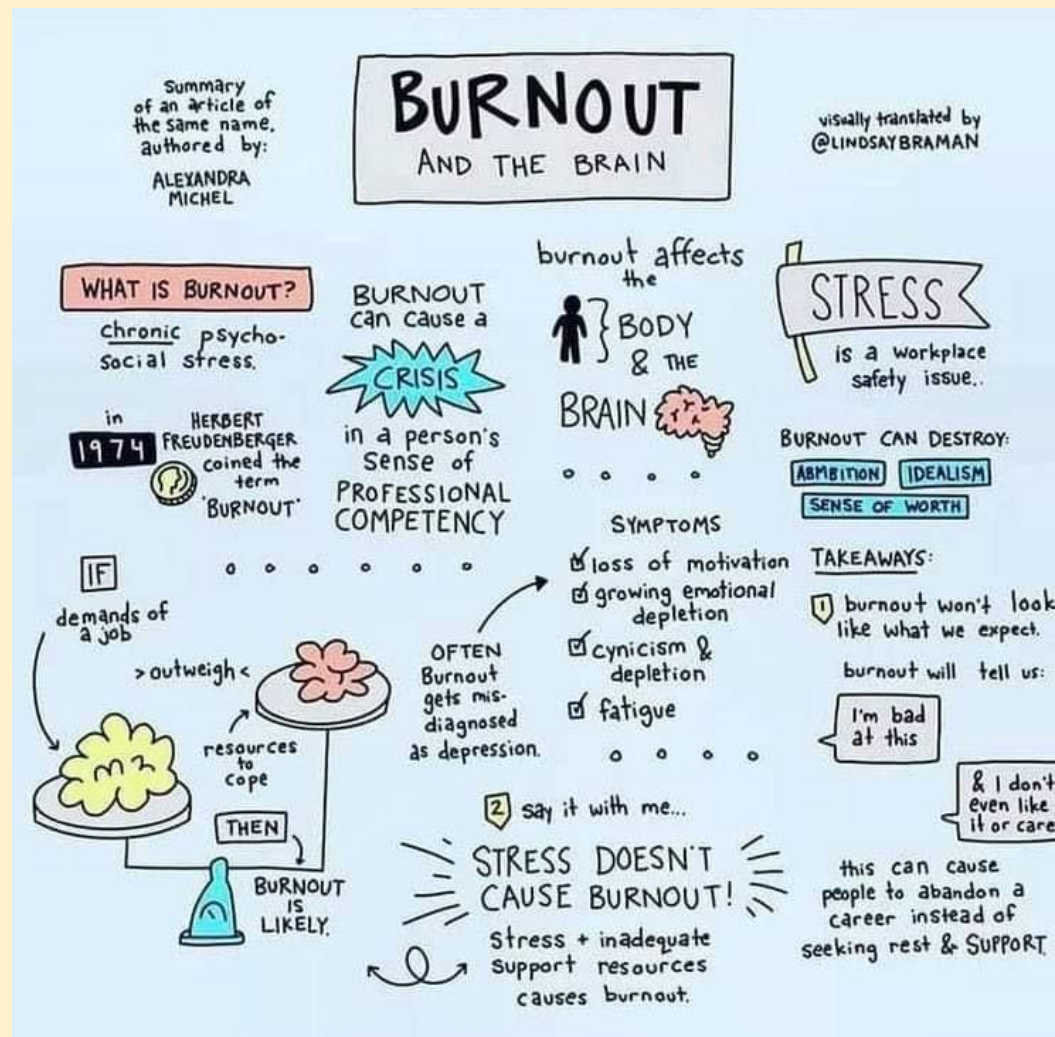 Summary
of an article of
the same name,
authored by:
ALEXANDRA
MICHEL
BURNOUT
AND THE BRAIN
visually translated by
@LINDSAYBRAMAN
WHAT IS BURNOUT?
chronic psycho-
social stress.
in
1974
HERBERT
FREUDENBERGER
coined the
term
'BURNOUT'
BURNOUT
can cause a
CRISIS
in a person's
sense of
PROFESSIONAL
COMPETENCY
burnout affects
the
BODY
& THE
BRAIN
STRESS
is a workplace
safety issue..
BURNOUT CAN DESTROY:
ABMBITION
IDEALISM
SENSE OF WORTH
IF
demands of
a job
>outweigh<
resources
to
cope
THEN
BURNOUT
IS
LIKELY.
OFTEN
Burnout
gets mis-
diagnosed
as depression.
SYMPTOMS
loss of motivation
growing emotional
depletion
cynicism &
depletion
fatigue
TAKEAWAYS:
1 burnout won't look
like what we expect.
burnout will tell us:
I'm bad
at this
& I don't
even like
it or care
this can cause
people to abandon a
career instead of
seeking rest & SUPPORT.
2 say it with me...
STRESS DOESN'T
CAUSE BURNOUT!
stress + inadequate
support resources
causes burnout.